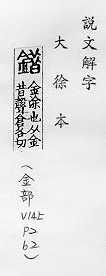 說文解字
大徐本
錯
金涂也从金
昔聲倉各切
（金部
V14上
P2
b2）